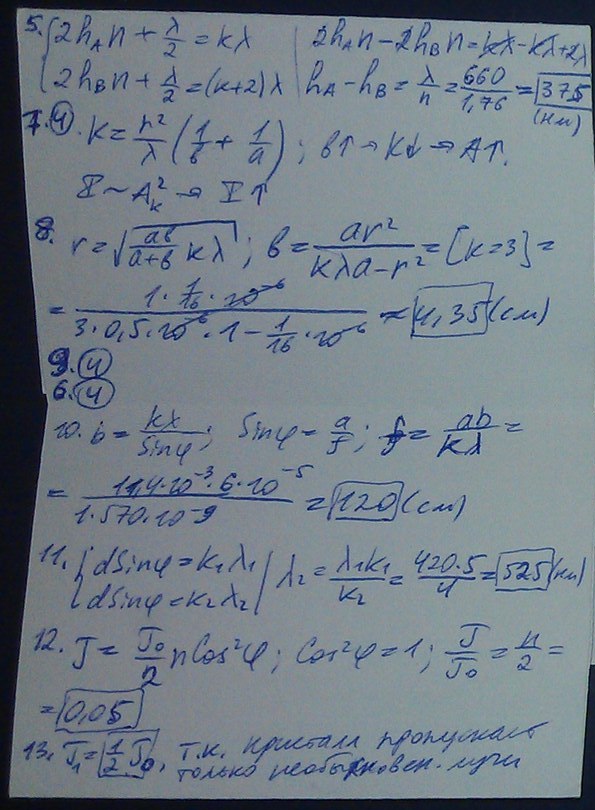 5. { 2h_A n + λ/2 = kλ | 2h_A n - 2h_B n = kλ - kλ + 2λ
{ 2h_B n + λ/2 = (k+2)λ | h_A - h_B = λ/n = 660/1,76 = 375 (нм)
7. 4 . k = r²/λ (1/в + 1/a) ; в↑ → k↓ → A↑.
I ~ A_k² → I↑
8. r = √(aв/(a+в) kλ) ; в = ar²/(kλa - r²) = [k=3] =
= (1 · 1/16 · 10⁻⁶)/(3 · 0,5 · 10⁻⁶ · 1 - 1/16 · 10⁻⁶) ≈ 4,35 (см)
9. 4
6. 4
10. b = kλ/sinφ ; sinφ = a/f ; f = ab/kλ =
= (11,4 · 10⁻³ · 6 · 10⁻⁵)/(1 · 570 · 10⁻⁹) = 120 (см)
11. { dSinφ = k₁λ₁ | λ₂ = λ₁k₁/k₂ = 420·5/4 = 525 (нм)
{ dSinφ = k₂λ₂ |
12. J = J₀/2 n Cos²φ ; Cos²φ = 1 ; J/J₀ = n/2 =
= 0,05
13. J₁ = 1/2 J₀, т.к. кристалл пропускает
только необыкновен. лучи